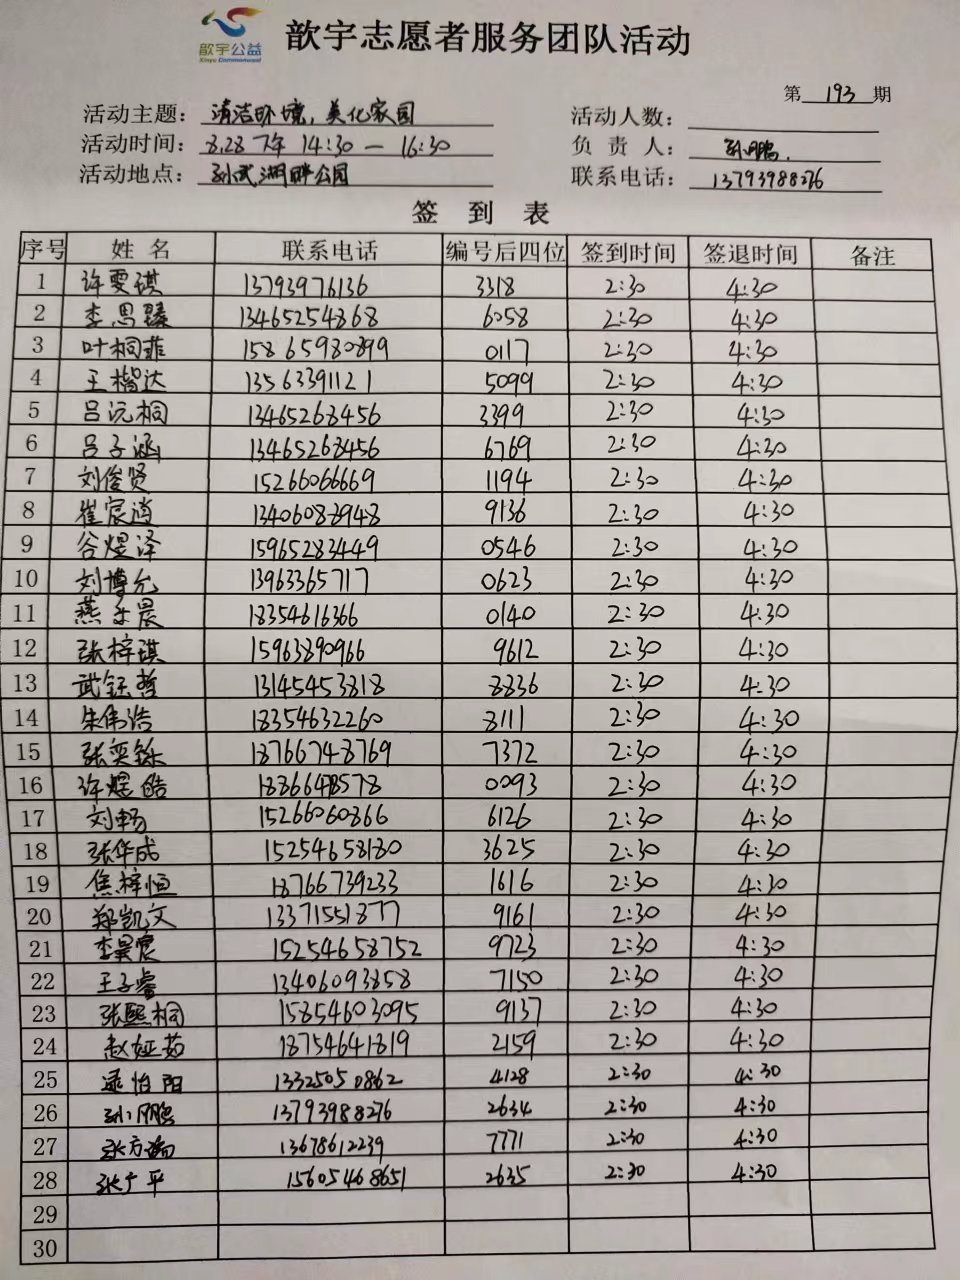 歆宇公益
Xinyu Commonweal
歆宇志愿者服务团队活动
第 193 期
活动主题： 清洁环境，美化家园 活动人数：
活动时间： 8.28 下午 14:30 — 16:30 负 责 人： 孙鹏
活动地点： 孙武湖畔公园 联系电话： 13793988276
签 到 表
序号 姓 名 联系电话 编号后四位 签到时间 签退时间 备注
1 许雯琪 13793976136 3318 2:30 4:30
2 李思臻 13465254868 6058 2:30 4:30
3 叶桐菲 15865980899 0117 2:30 4:30
4 王楷达 13563391121 5099 2:30 4:30
5 吕沅桐 13465268456 3399 2:30 4:30
6 吕子涵 13465268456 6769 2:30 4:30
7 刘俊贤 15266066669 1194 2:30 4:30
8 崔宸 13406088948 9136 2:30 4:30
9 谷煜泽 15965283449 0546 2:30 4:30
10 刘博允 13963365717 0623 2:30 4:30
11 燕乐晨 18354616366 0140 2:30 4:30
12 张梓琪 15963890966 9612 2:30 4:30
13 武钰哲 13145453818 8836 2:30 4:30
14 朱伟浩 18354632260 8111 2:30 4:30
15 张奕铄 18766748769 7372 2:30 4:30
16 许煜皓 0093 2:30 4:30
17 刘畅 15266060866 6126 2:30 4:30
18 张华成 15254658180 3625 2:30 4:30
19 焦梓恒 18766739233 1616 2:30 4:30
20 郑凯文 13371551877 9161 2:30 4:30
21 李昊宸 15254658752 9723 2:30 4:30
22 王子睿 13406093858 7150 2:30 4:30
23 张熙桐 15854603095 9137 2:30 4:30
24 赵娅茹 18754641819 2159 2:30 4:30
25 逯怡阳 13325050862 4128 2:30 4:30
26 孙鹏 13793988276 2634 2:30 4:30
27 张方 13678612239 7771 2:30 4:30
28 张广平 15605468651 2635 2:30 4:30
29
30